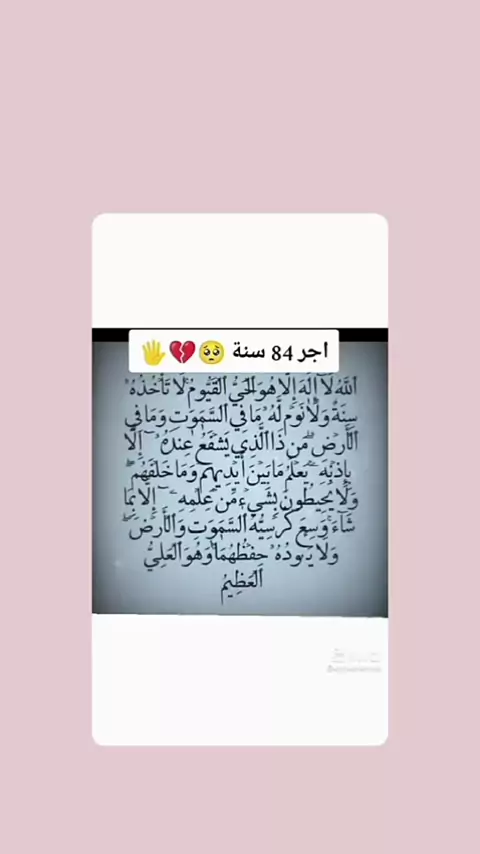 اجر 84 سنة 🥺💔🖐
اللَّهُ لَا إِلَٰهَ إِلَّا هُوَ الْحَيُّ الْقَيُّومُ ۚ لَا تَأْخُذُهُ
سِنَةٌ وَلَا نَوْمٌ لَّهُ مَا فِي السَّمَٰوَٰتِ وَمَا فِي
الْأَرْضِ ۗ مَن ذَا الَّذِي يَشْفَعُ عِندَهُ إِلَّا
بِإِذْنِهِ ۚ يَعْلَمُ مَا بَيْنَ أَيْدِيهِمْ وَمَا خَلْفَهُمْ ۖ
وَلَا يُحِيطُونَ بِشَيْءٍ مِّنْ عِلْمِهِ إِلَّا بِمَا
شَاءَ ۚ وَسِعَ كُرْسِيُّهُ السَّمَٰوَٰتِ وَالْأَرْضَ ۖ
وَلَا يَـُٔودُهُ حِفْظُهُمَا ۚ وَهُوَ الْعَلِيُّ
الْعَظِيمُ